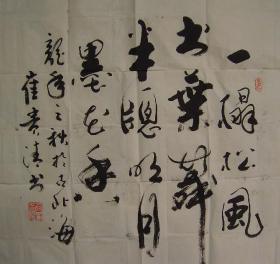 一榻松風
书葉舞
半牕明月
墨花香
龍年之秋於古北海
崔貴清书